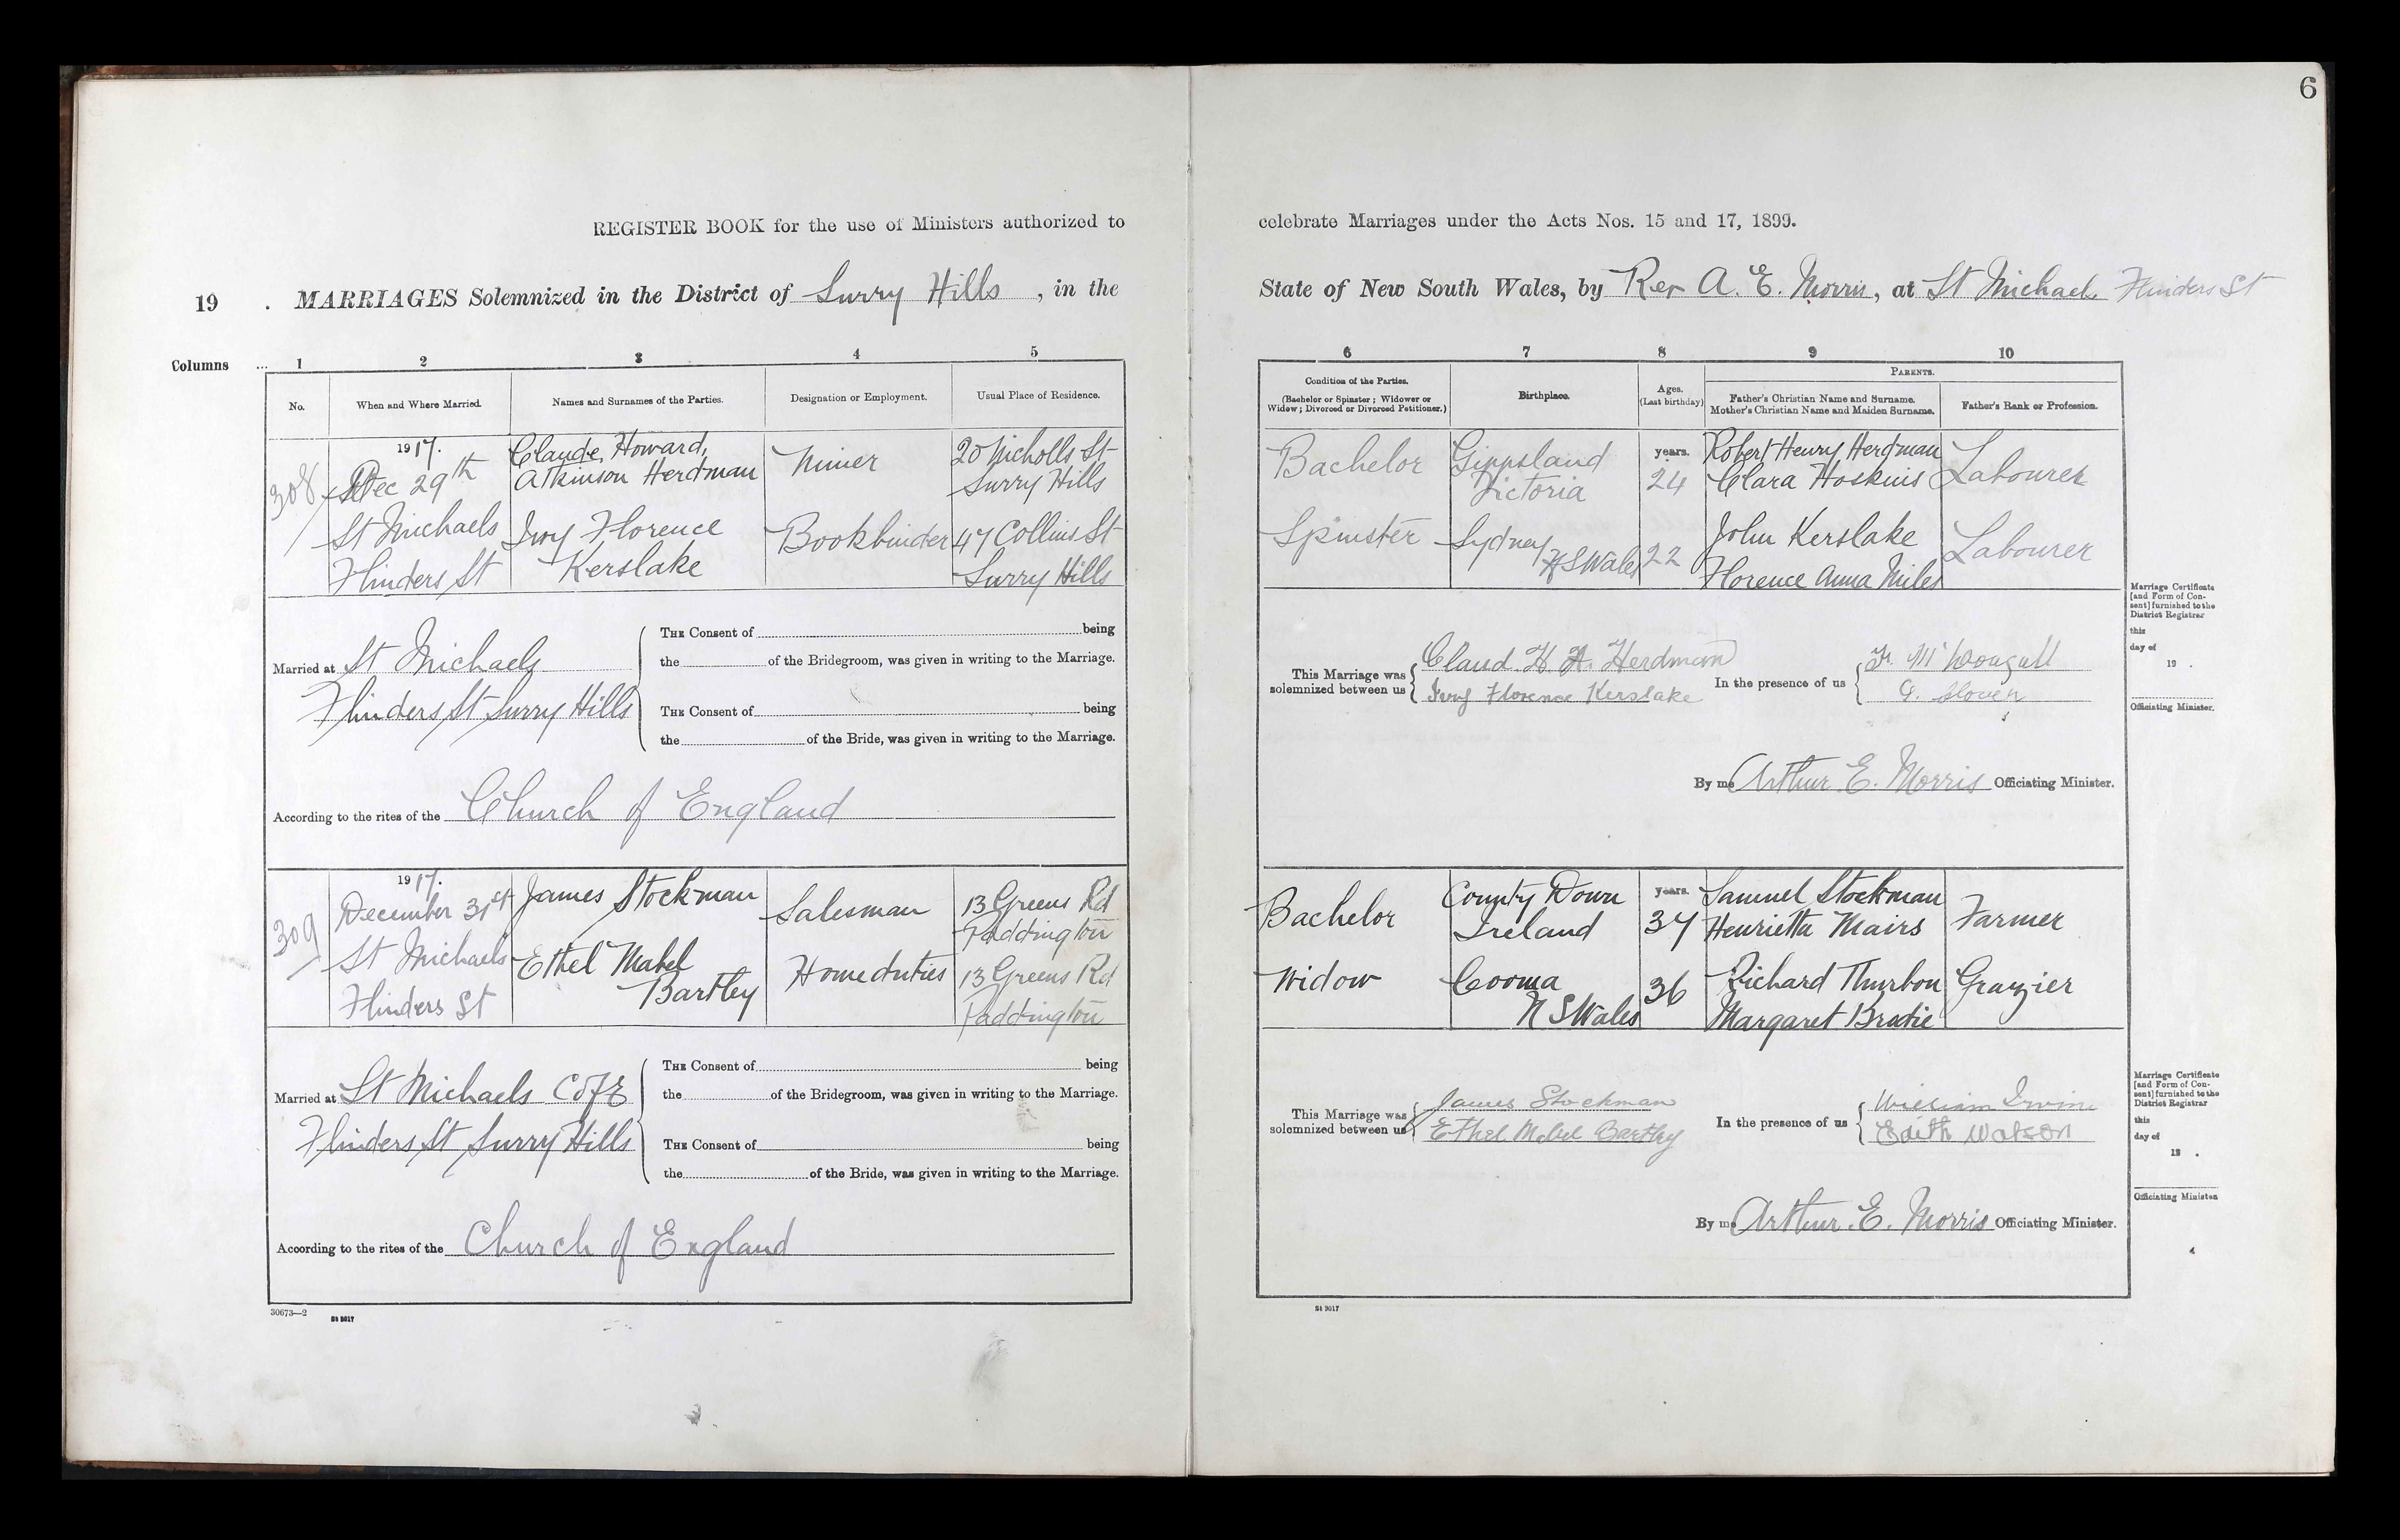 6
REGISTER BOOK for the use of Ministers authorized to
celebrate Marriages under the Acts Nos. 15 and 17, 1899.
19 . MARRIAGES Solemnized in the District of Surry Hills, in the
State of New South Wales, by Rev A. E. Morris, at St Michael Flinders St
Columns ... 1 2 3 4 5
No. When and Where Married. Names and Surnames of the Parties. Designation or Employment. Usual Place of Residence.
308
1917.
Dec 29th
St Michaels
Flinders St
Claude, Howard,
Atkinson Herdman
Miner
20 Nicholls St
Surry Hills
Ivy Florence
Kerslake
Bookbinder
47 Collins St
Surry Hills
Married at St Michaels
Flinders St Surry Hills
THE Consent of being
the of the Bridegroom, was given in writing to the Marriage.
THE Consent of being
the of the Bride, was given in writing to the Marriage.
According to the rites of the Church of England
309
1917.
December 31st
St Michaels
Flinders St
James Stockman
Salesman
13 Greens Rd
Paddington
Ethel Mabel
Bartley
Home duties
13 Greens Rd
Paddington
Married at St Michaels C of E
Flinders St Surry Hills
THE Consent of being
the of the Bridegroom, was given in writing to the Marriage.
THE Consent of being
the of the Bride, was given in writing to the Marriage.
According to the rites of the Church of England
30673—2
St 9017
6 7 8 9 10
Condition of the Parties.
(Bachelor or Spinster; Widower or
Widow; Divorced or Divorced Petitioner.)
Birthplace.
Ages.
(Last birthday)
PARENTS.
Father's Christian Name and Surname.
Mother's Christian Name and Maiden Surname.
Father's Rank or Profession.
Bachelor
Gippsland
Victoria
years.
24
Robert Henry Herdman
Clara Hoskins
Labourer
Spinster
Sydney
N S Wales
22
John Kerslake
Florence Anna Miles
Labourer
This Marriage was
solemnized between us
Claud H. A. Herdman
Ivy Florence Kerslake
In the presence of us
McDougall
G.
By me Arthur E. Morris Officiating Minister.
Marriage Certificate
[and Form of Con-
sent] furnished to the
District Registrar
this
day of
19 .
Officiating Minister.
Bachelor
County Down
Ireland
years.
37
Samuel Stockman
Henrietta Mairs
Farmer
Widow
Cooma
N S Wales
36
Richard Thurbon
Margaret Brodie
Grazier
This Marriage was
solemnized between us
James Stockman
Ethel Mabel Bartley
In the presence of us
William Irvine
Edith Watson
By me Arthur. E. Morris Officiating Minister.
Marriage Certificate
[and Form of Con-
sent] furnished to the
District Registrar
this
day of
19 .
Officiating Minister.
St 9017